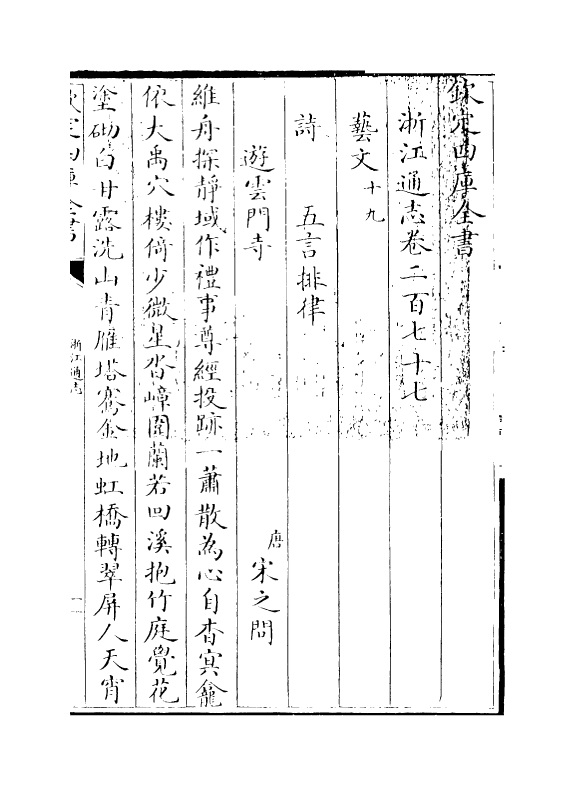 欽定四庫全書
浙江通志卷二百七十七
藝文十九
詩 五言排律
遊雲門寺 唐 宋之問
維舟探靜域作禮事尊經投跡一蕭散為心自杳冥龕
依大禹穴樓倚少微星沓嶂圍蘭若回溪抱竹庭覺花
塗砌白甘露洗山青雁塔鶱金地虹橋轉翠屏人天宵
欽定四庫全書
浙江通志
一